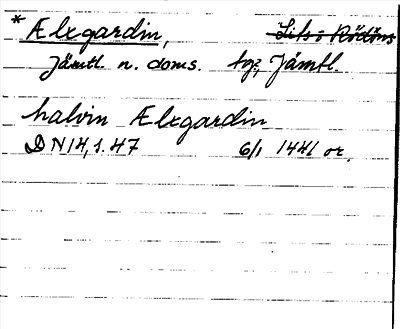 * Ælxgardin, Lits o Rödöns
Jämtl. n. doms. tg; Jämtl.
halvin Ælxgardin
DN14,1.47 6/1 1441 or.